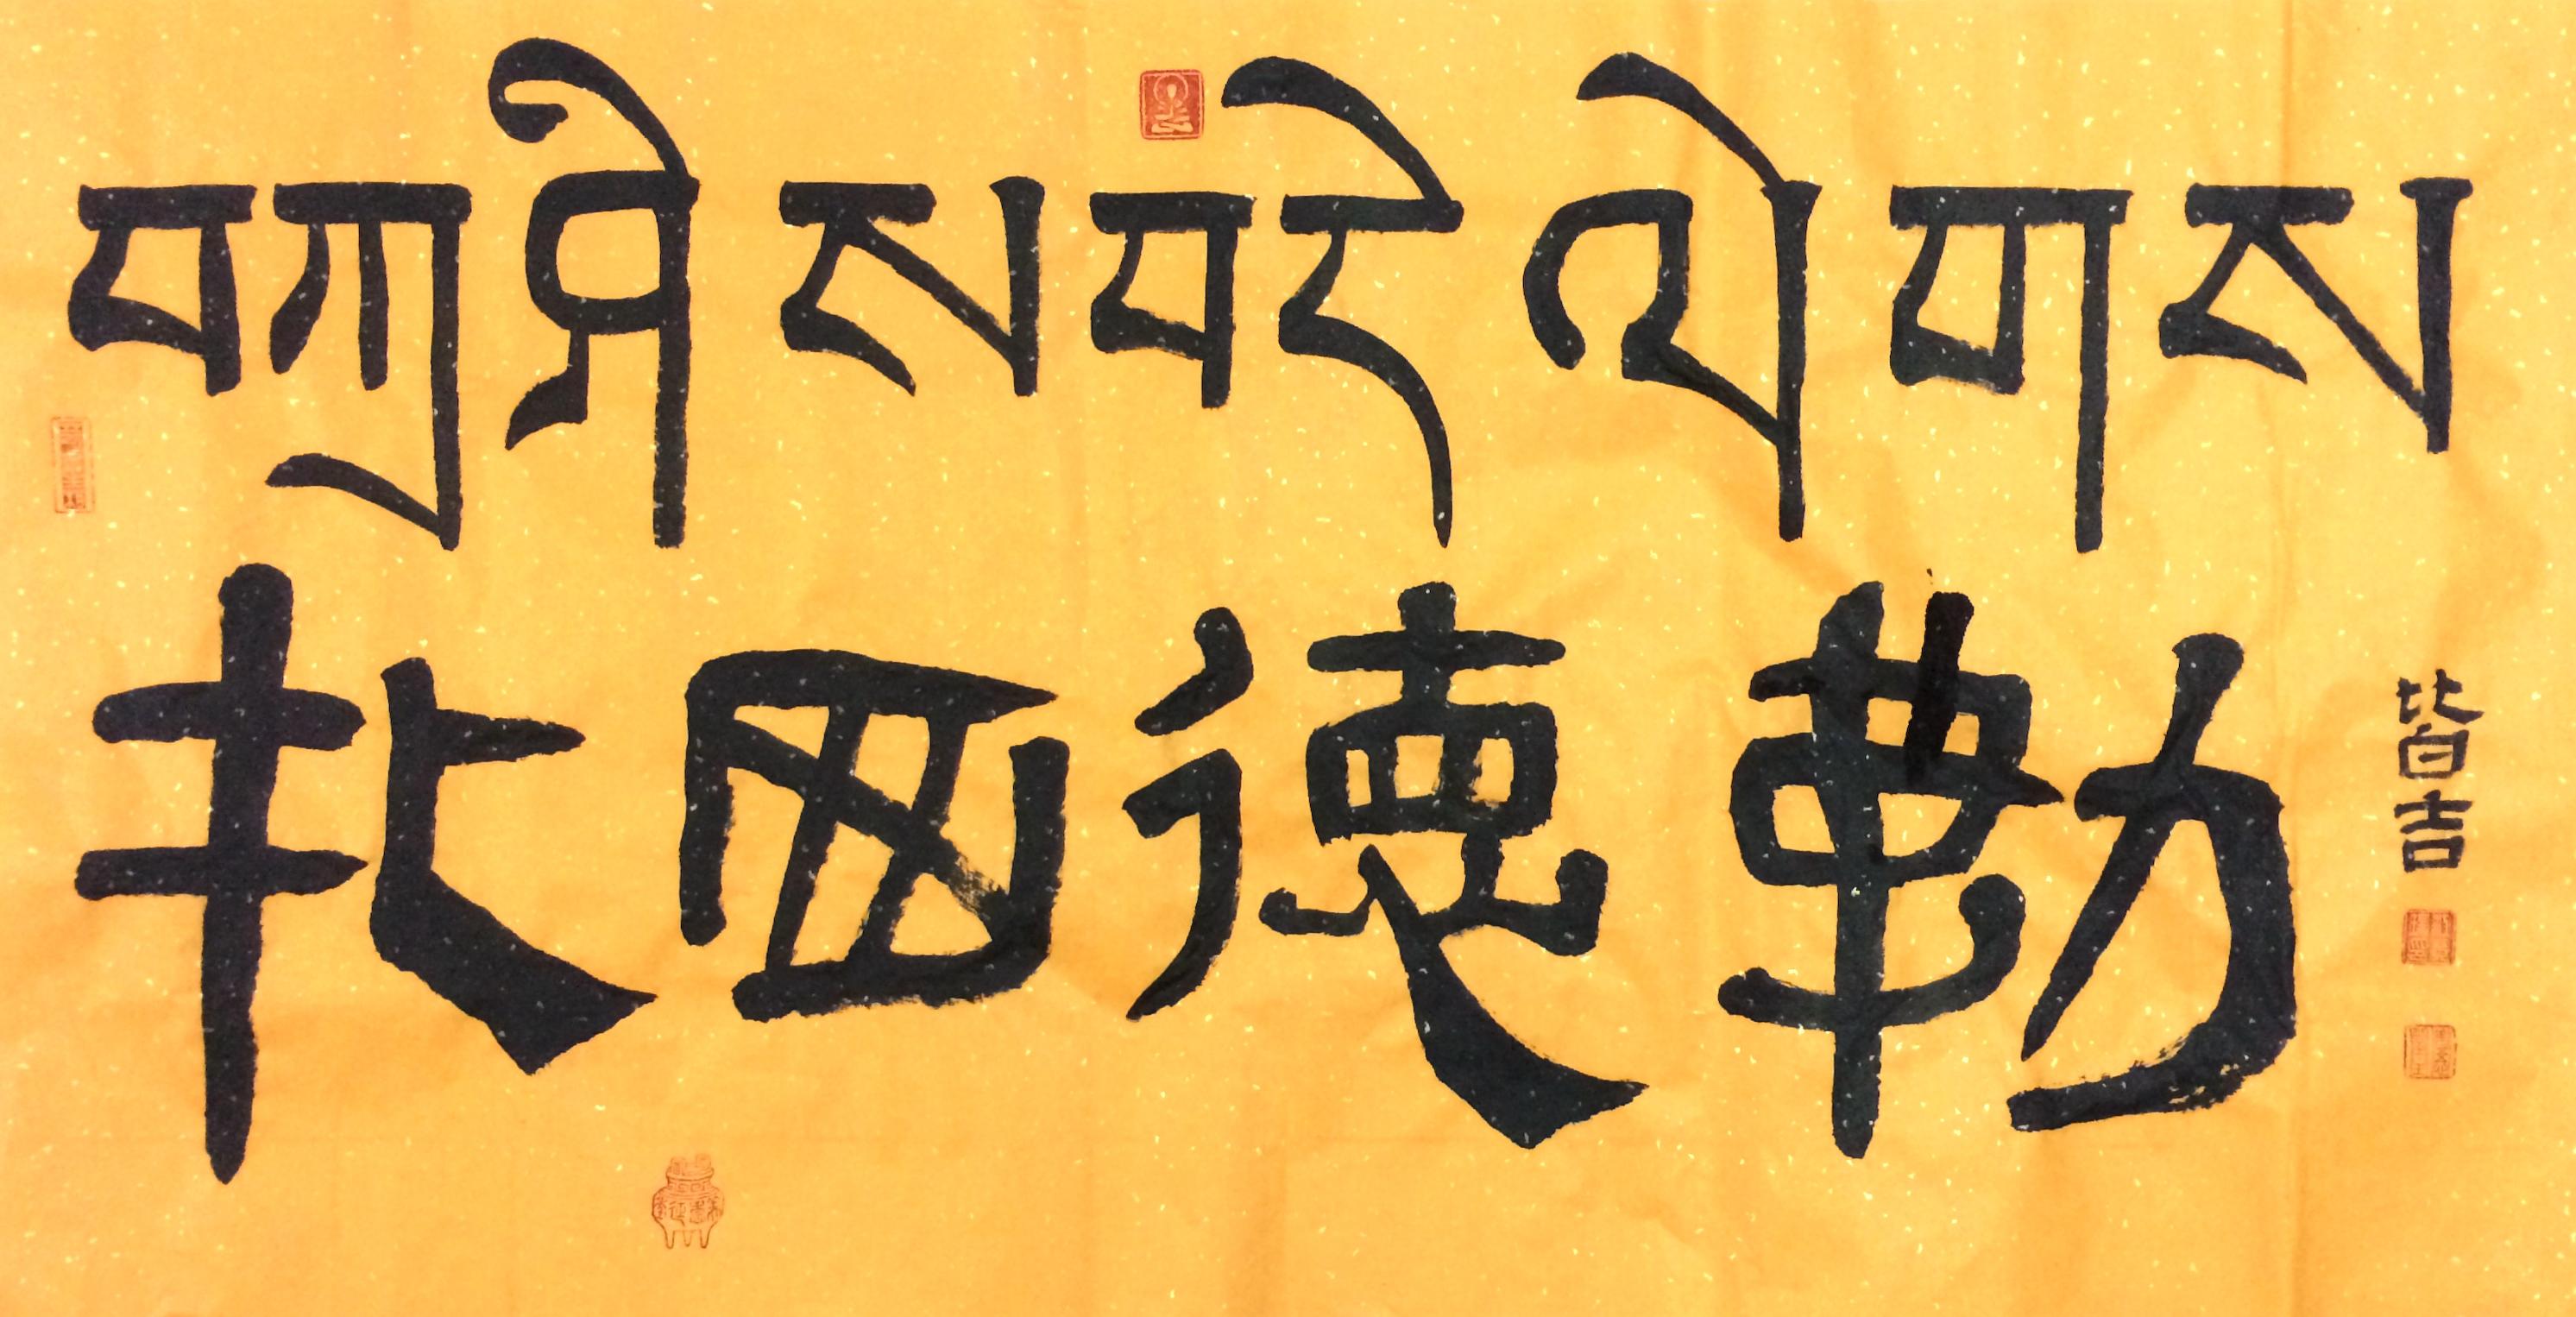 བཀྲ་ཤིས་བདེ་ལེགས
扎西德勒
皆吉